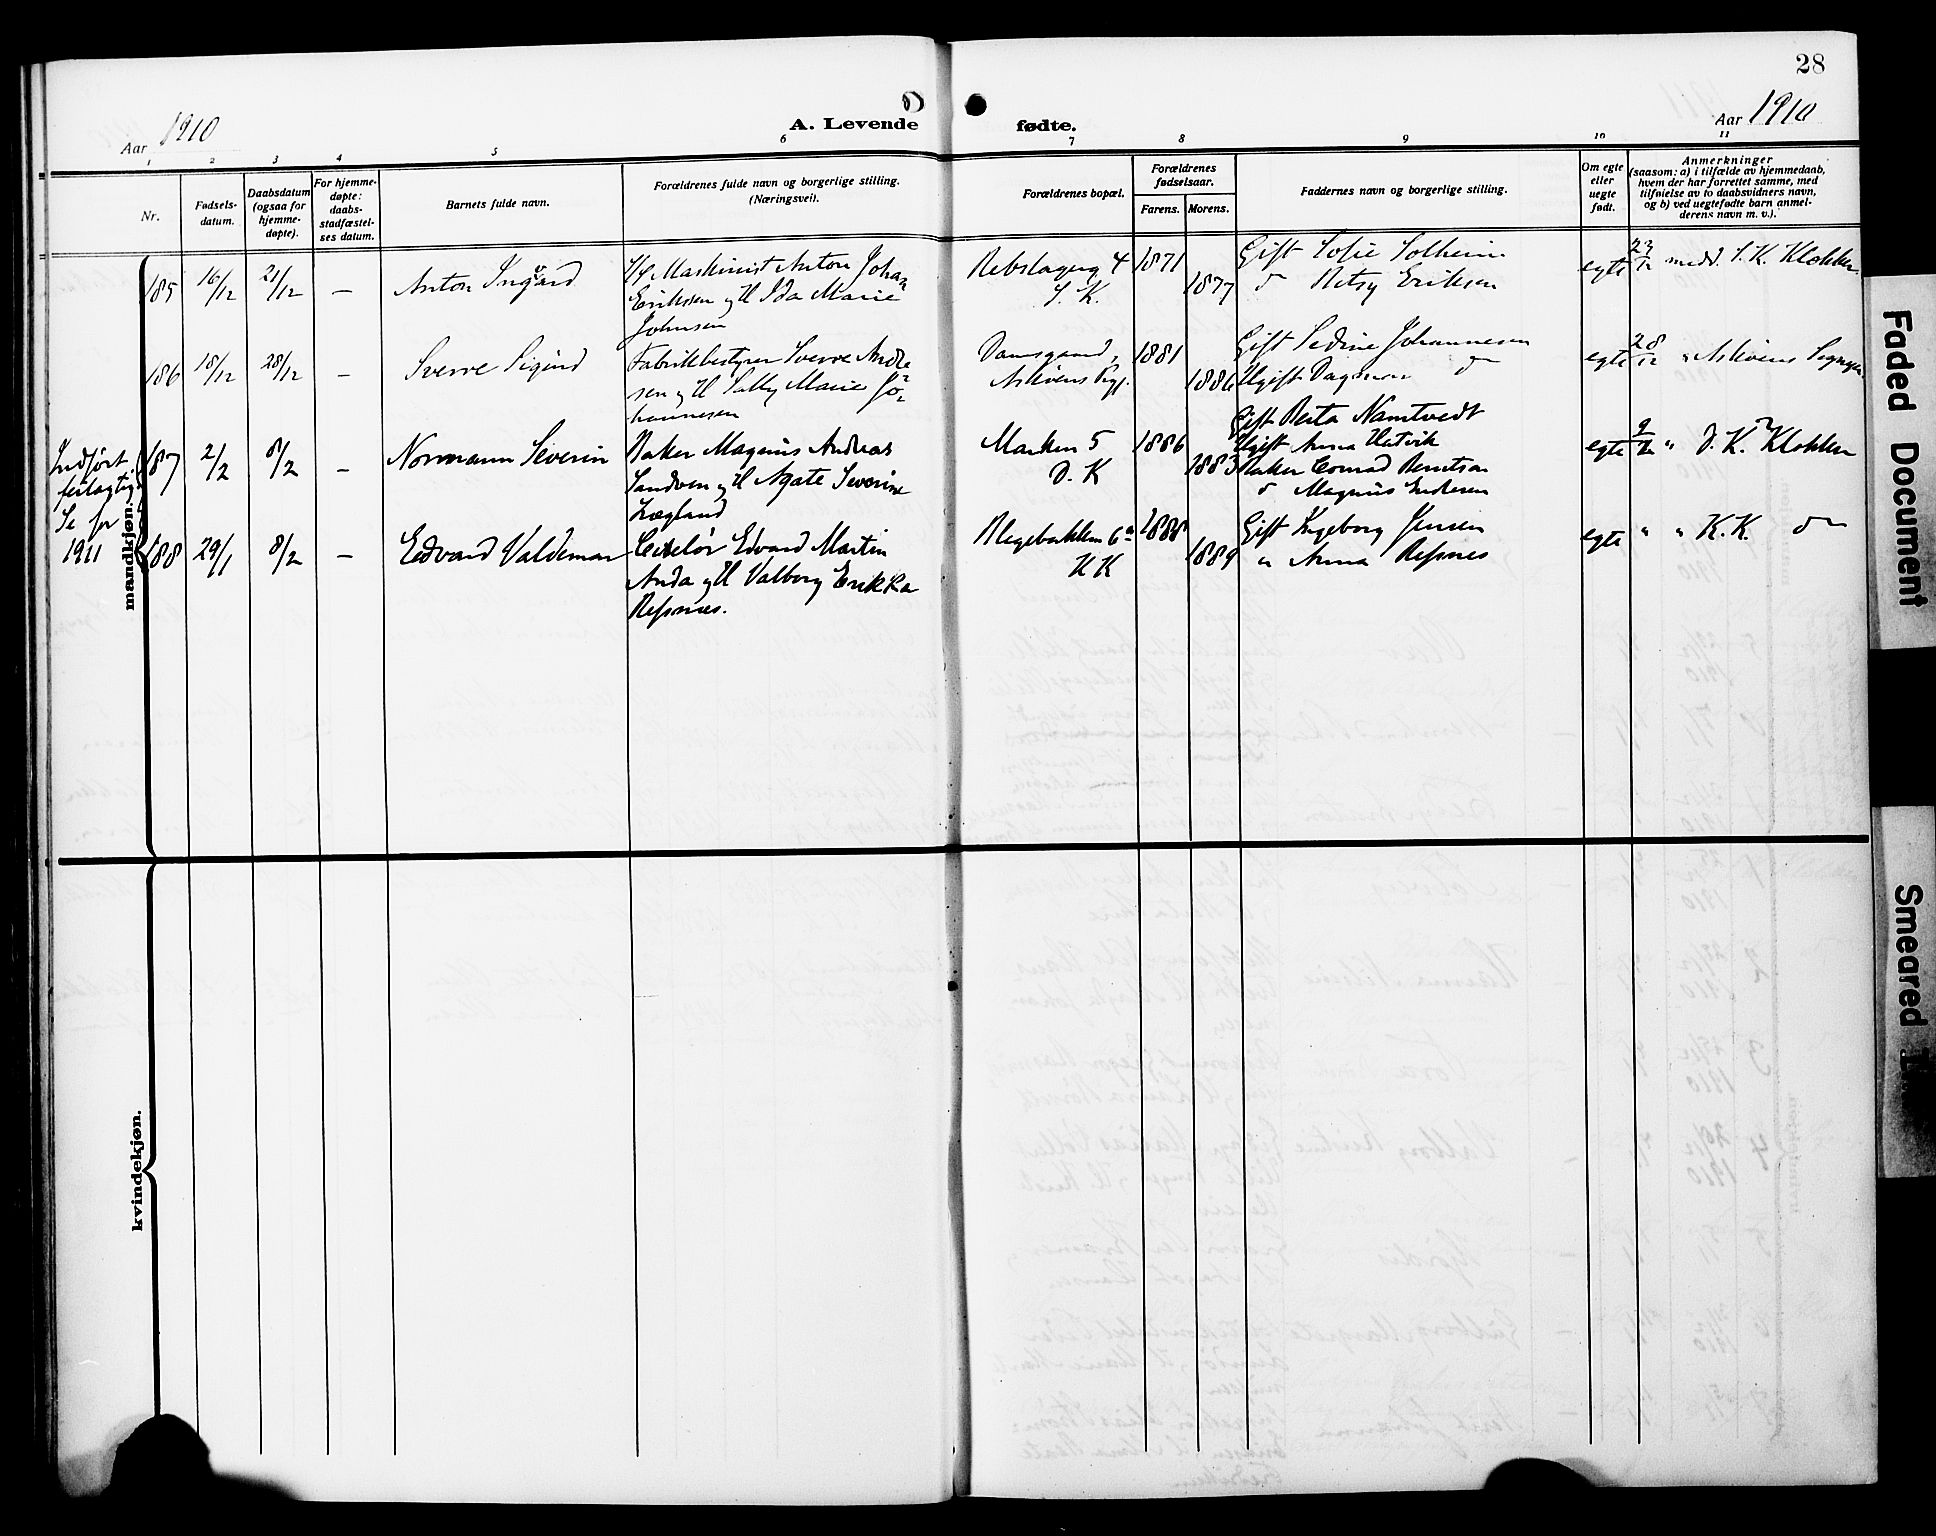 28
Aar 1910
A. Levende fødte.
Aar 1910
1 2 3 4 5 6 7 8 9 10 11
Nr.
Fødsels-
datum.
Daabsdatum
(ogsaa for
hjemme-
døpte).
For hjemme-
døpte:
daabs-
stadfæstel-
ses datum.
Barnets fulde navn.
Forældrenes fulde navn og borgerlige stilling.
(Næringsvei).
Forældrenes bopæl.
Forældrenes
fødselsaar.
Farens. Morens.
Faddernes navn og borgerlige stilling.
Om egte
eller
uegte
født.
Anmerkninger
(saasom: a) i tilfælde av hjemmedaab,
hvem der har forrettet samme, med
tilføielse av to daabsvidners navn,
og b) ved uegtefødte barn anmel-
derens navn m. v.).
mandkjøn.
185
16/12
21/12
—
Anton Ingvard
Maskinist Anton Johan
Eriksen og H Ida Marie
Johnsen
Rebslagerg 4
S. K.
1871
1877
Gift Sofie Solheim
Betsy Eriksen
egte
23/12 medd. S. K. Klokker
186
18/12
28/12
—
Sverre Sigurd
Fabrikbestyrer Sverre Andre
sen og H Sally Marie Jo-
hannesen
Damsgaard,
Askøens Prgj.
1881
1886
Gift Sedine Johannesen
Ugift Dagmar do
egte
28/12 " Askøens Sogнepr.
Indført
feilagtig.
Se for
1911
187
2/2
8/2
—
Normann Severin
Baker Magnus Andreas
Sandven og H Agate Severine
Lægland
Marken 5
D. K
1886
1883
Gift Berta Namtvedt
Ugift Anna Hatvik
Baker Conrad Berntsen
do Magnus Endresen
egte
9/2 " D. K. Klokker
188
29/1
8/2
—
Edvard Valdemar
Ciselør Edvard Martin
Anda og H Valborg Erikka
Refsnes.
Blegebakken 6a
K K
1888
1889
Gift Ingeborg Jensen
" Anna Refsnes
egte
" " K. K. do
kvindekjøn.
Faded Document
Smeared